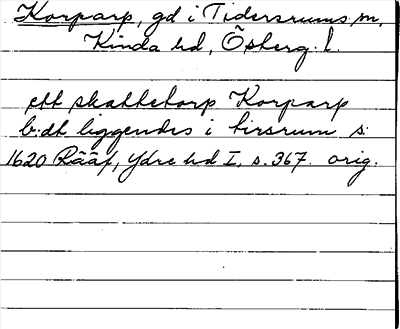 Korparp, gd i Tidersrums sn,
Kinda hd, Östberg. l.
ett skattetorp Korparp
b:dt liggendes i tirsrum s:
1620 Rääf, Ydre hd I, s. 367. orig.